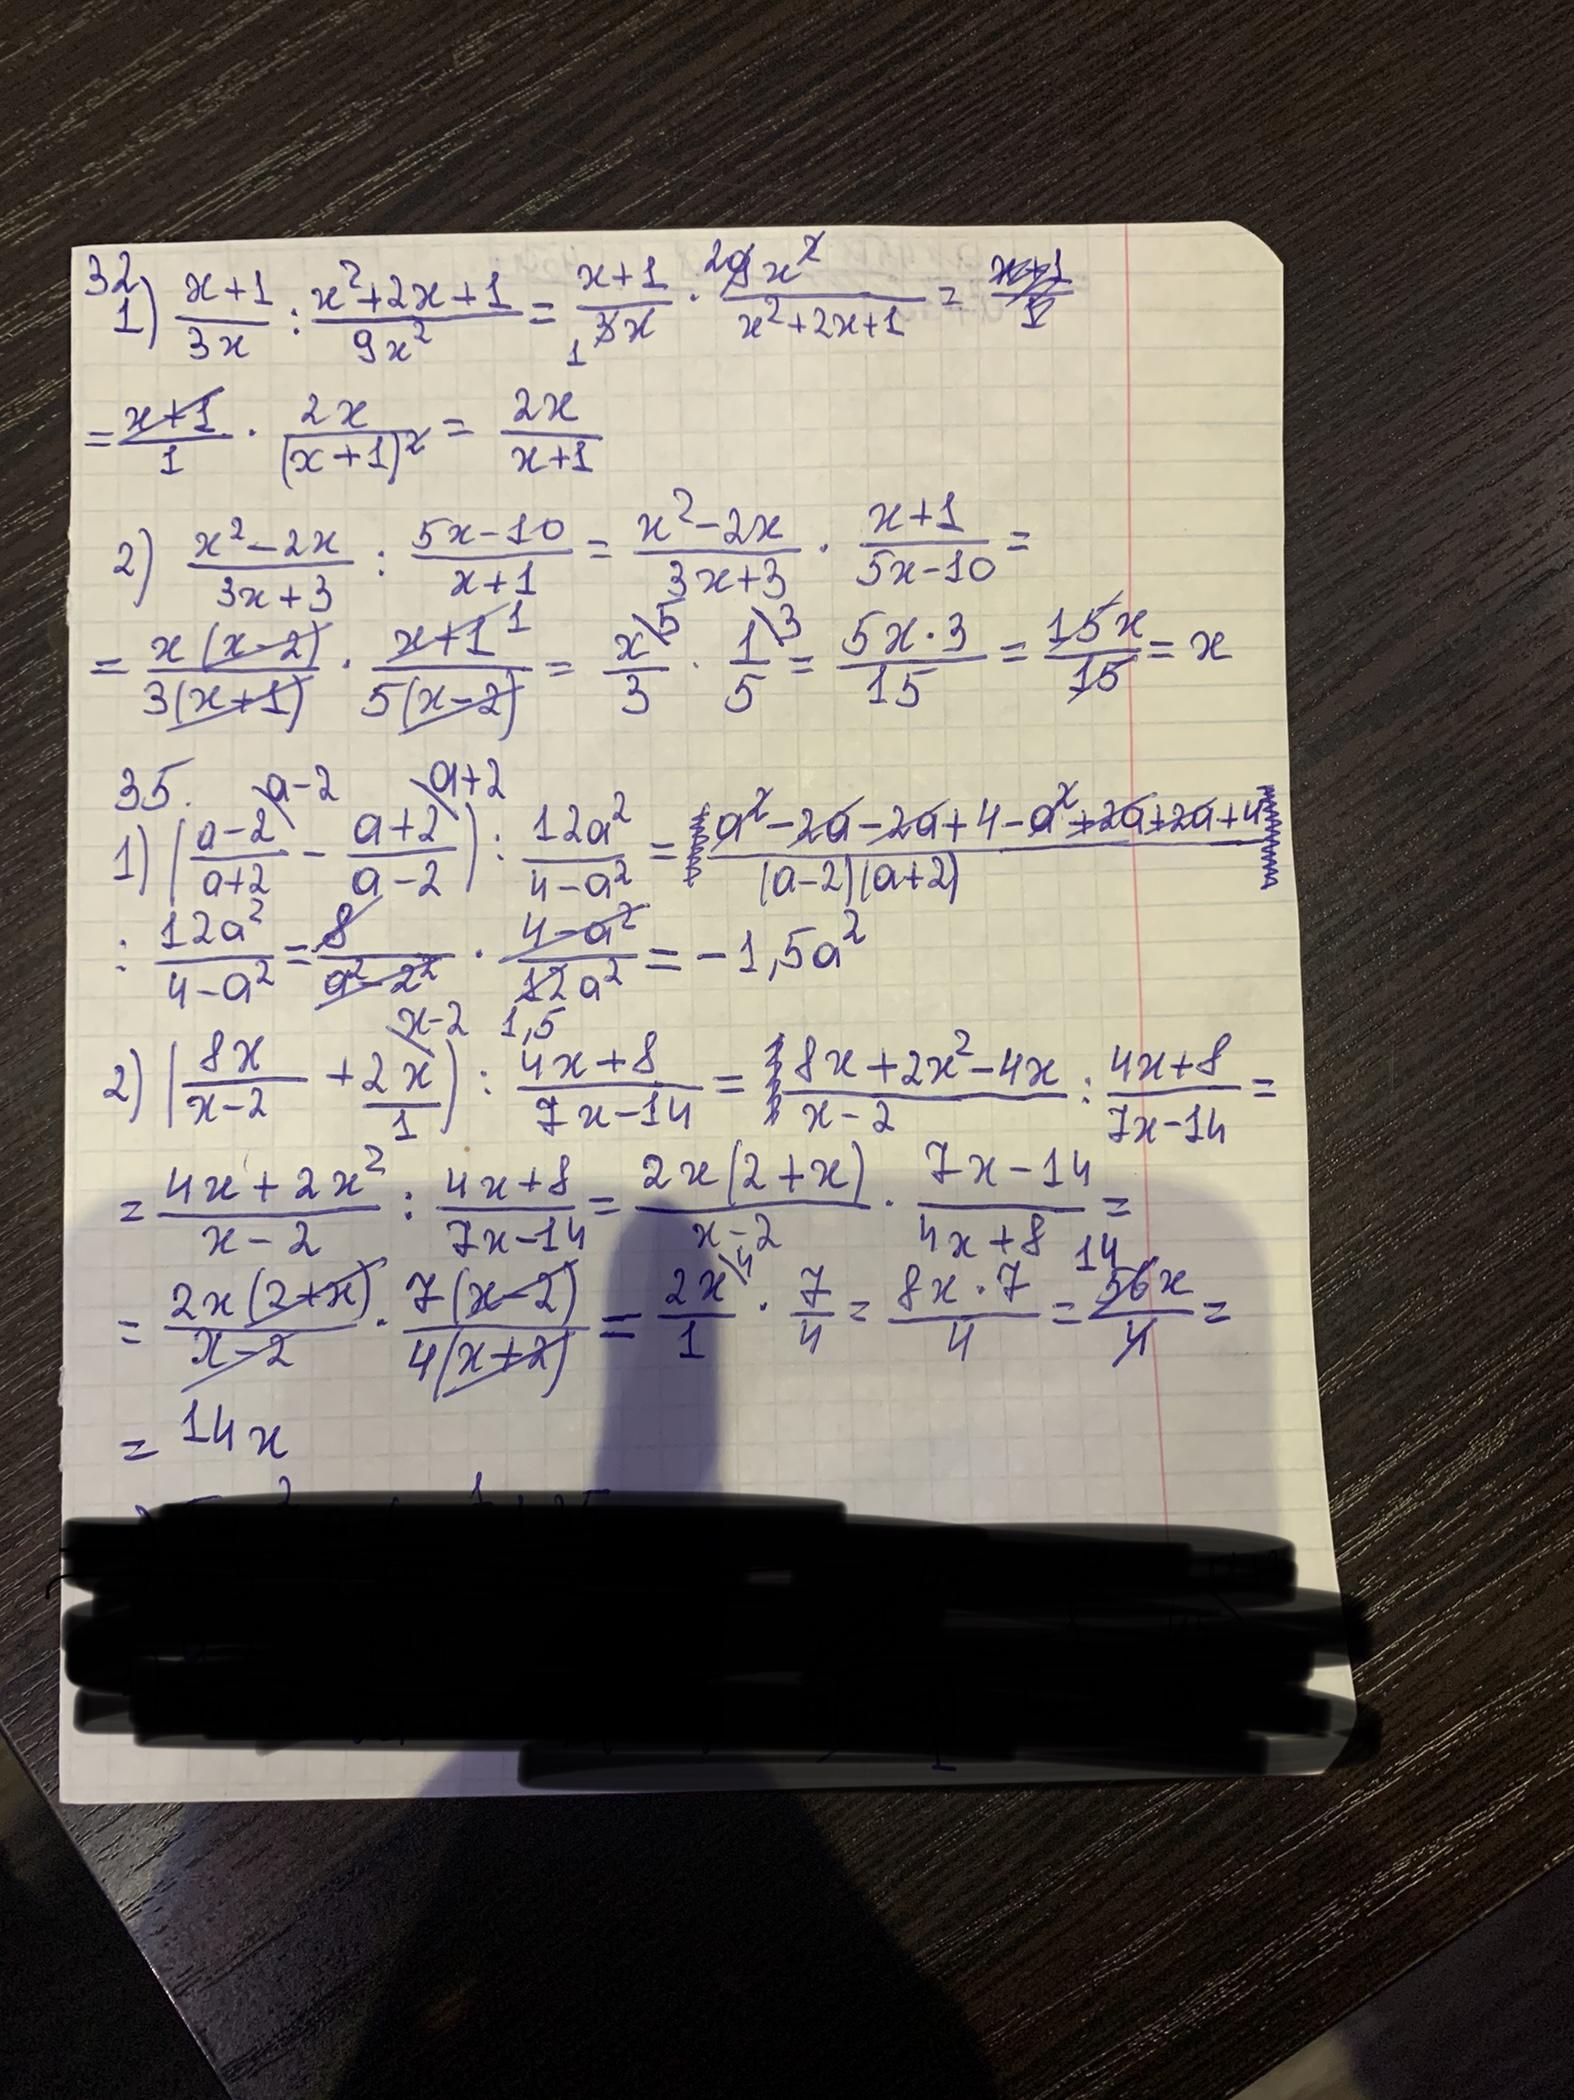 32
1) (x+1)/(3x) : (x²+2x+1)/(9x²) = (x+1)/(3x) · (9x²)/(x²+2x+1) =
= (x+1)/1 · 2x/(x+1)² = 2x/(x+1)
2) (x²-2x)/(3x+3) : (5x-10)/(x+1) = (x²-2x)/(3x+3) · (x+1)/(5x-10) =
= x(x-2)/3(x+1) · (x+1)/5(x-2) = x/3 · 1/5 = (5x·3)/15 = 15x/15 = x
35.
1) ((a-2)/(a+2) - (a+2)/(a-2)) : 12a²/(4-a²) = (a²-2a-2a+4-a²+2a+2a+4)/(a-2)(a+2)
: 12a²/(4-a²) = 8/(a²-2²) · (4-a²)/12a² = -1,5a²
2) (8x/(x-2) + 2x/1) : (4x+8)/(7x-14) = (8x+2x²-4x)/(x-2) : (4x+8)/(7x-14) =
= (4x+2x²)/(x-2) : (4x+8)/(7x-14) = 2x(2+x)/(x-2) · (7x-14)/(4x+8) =
= 2x(2+x)/(x-2) · 7(x-2)/4(x+2) = 2x/1 · 7/4 = (8x·7)/4 = 56x/4 =
= 14x